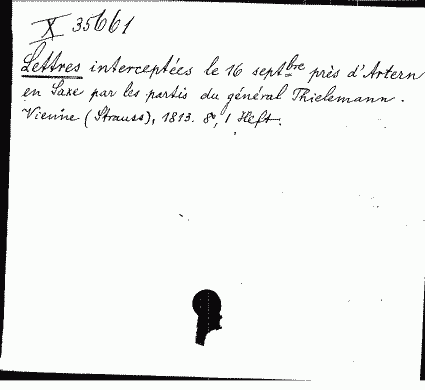 X 35661
Lettres interceptées le 16 septbre près d'Artern
en Saxe par les partis du général Thielemann.
Vienne (Strauss), 1813. 8°, 1 Heft.